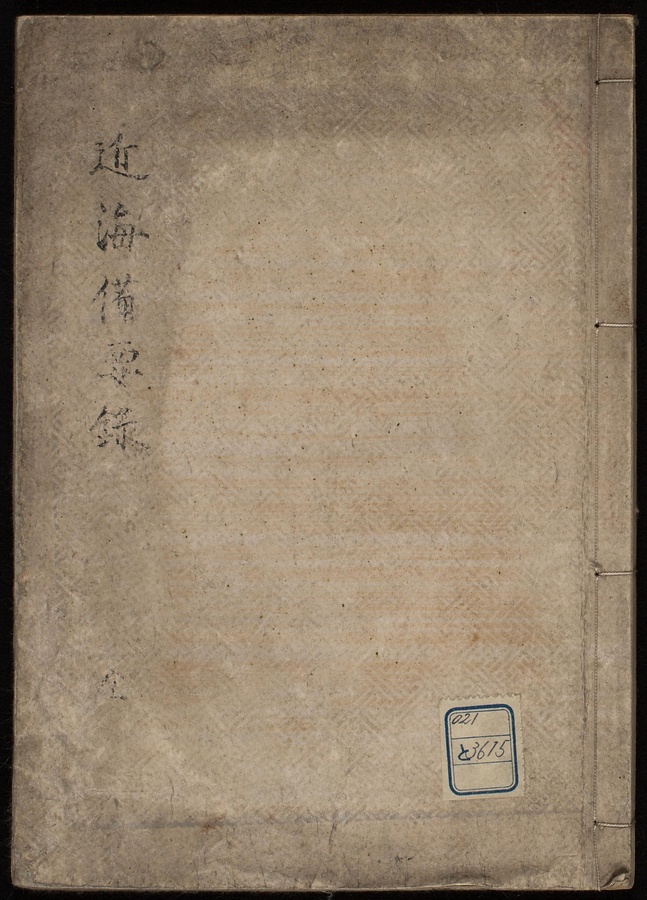 近海備要録
全
021
と3615